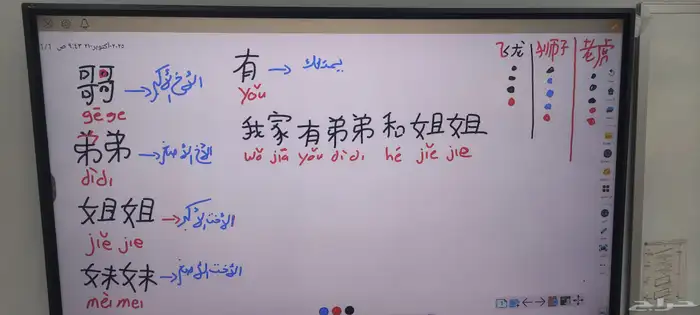 ٩:٤٣ ص
哥哥 الأخ الأكبر
gēge
弟弟 الأخ الأصغر
dìdi
姐姐 الأخت الأكبر
jiě jie
妹妹 الأخت الأصغر
mèi mei
有 يمتلك
yǒu
我家有弟弟和姐姐
wǒ jiā yǒu dìdi hé jiě jie
飞龙 狮子 老虎
حراج